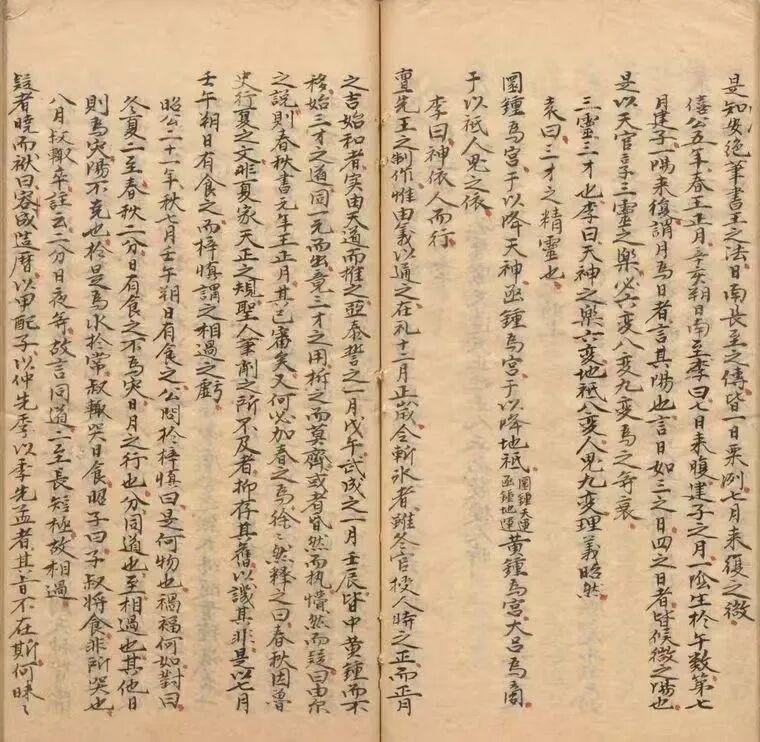 是知安絶筆書王之法日南長至之傳皆一日栗例七月来復之徴
僖公五年春王正月辛亥朔日南至李曰七日来復建子之月一陰生於午数第七
月建子一陽来復謂月為日者言其陽也言日如三之日四之日者皆候徴之陽也
是以天官享三霊之樂必六変八変九変為之等衰
三霊三才也李曰天神之樂六変地祇八変人鬼九変理義昭然
袁曰三才之精霊也
圜鍾為宮于以降天神函鍾為宮于以降地祇圜鍾天運函鍾地運黄鍾為宮大吕為商
于以祇人鬼之依
李曰神依人而行
亶先王之制作惟由義以通之在礼十二月正歳令斬氷者雖冬官授人時之正而正月
之吉始和者実由天道而推之亜泰誓之一月戊午武成之一月壬辰皆中黄鍾而不
移始三才之道同一元而出竟三才之用析之而莫齊或者昏然而执憒然而疑曰由尓
之説則春秋書元年王正月其已審矣又何必加春之為徐〻然釋之曰春秋因魯
史行夏之文非夏家天正之規聖人筆削之所不及者抑存其舊以譏其非是以七月
壬午朔日有食之而梓慎謂之相過之虧
昭公二十一年秋七月壬午朔日有食之公問於梓慎曰是何物也禍福何如對曰
冬夏二至春秋二分日有食之不為灾日月之行也分同道也至相過也其他日
則為灾陽不克也於是為水於常叔輙哭日食昭子曰子叔将食非所哭也
八月叔輙卒註云二分日夜等故言同道二至長短極故相過
疑者曉而祑曰容成造暦以甲配子以仲先季以季先孟者其旨不在斯何昧〻